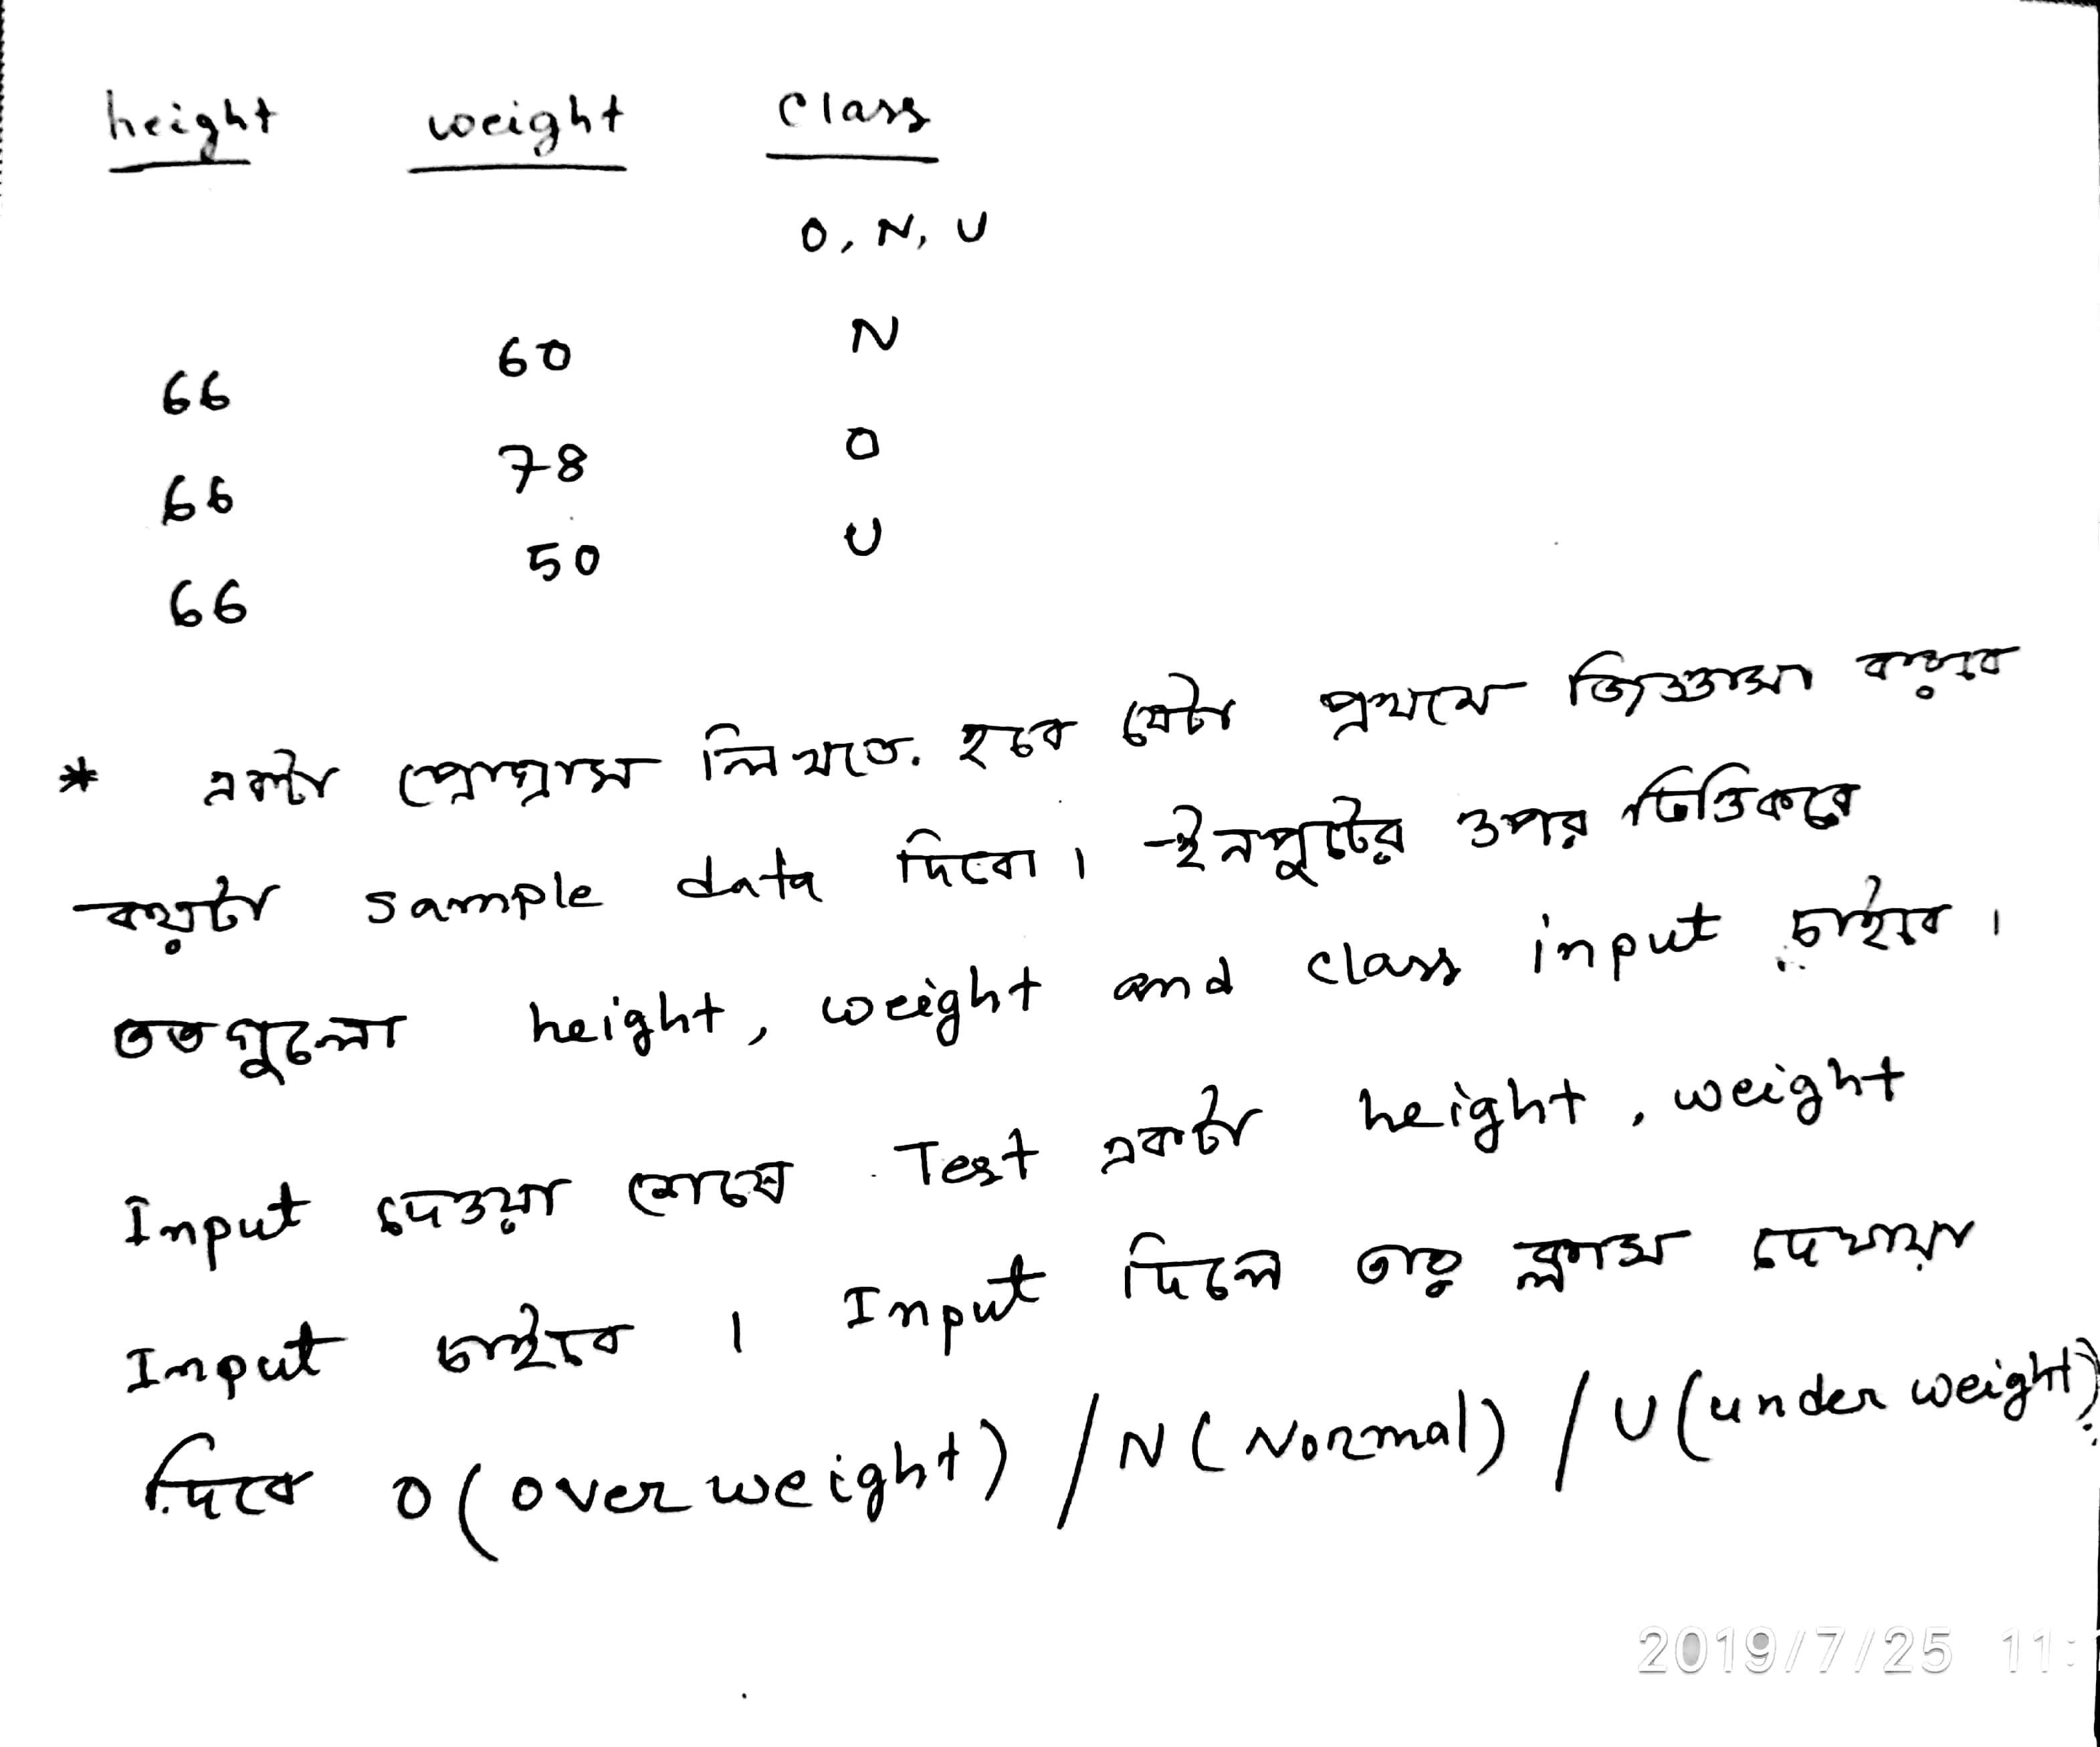 height weight class
O, N, U
66 60 N
66 78 O
66 50 U
* একটা প্রোগ্রাম লিখতে হবে যেটা প্রথমে জিজ্ঞাসা করবে
কয়টা sample data দিবো। ইনপুটের ওপর ভিত্তিকরে
ততগুলো height, weight and class input চাইবে।
Input দেওয়া শেষে Test একটা height, weight
Input চাইবে। Input দিলে তার ক্লাস দেখায়া
দিবে O (over weight) / N (Normal) / U (under weight)
2019/7/25 11: